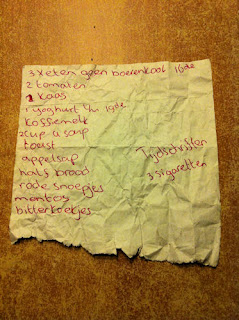 3 x eten geen boerenkool 19de
2 tomaten
1 kaas
1 yoghurt t/m 19de
koffiemelk
2 cup a soup
toast
appelsap
half brood
rode snoepjes
mentos
bitterkoekjes
Tijdschriften
3 sigaretten